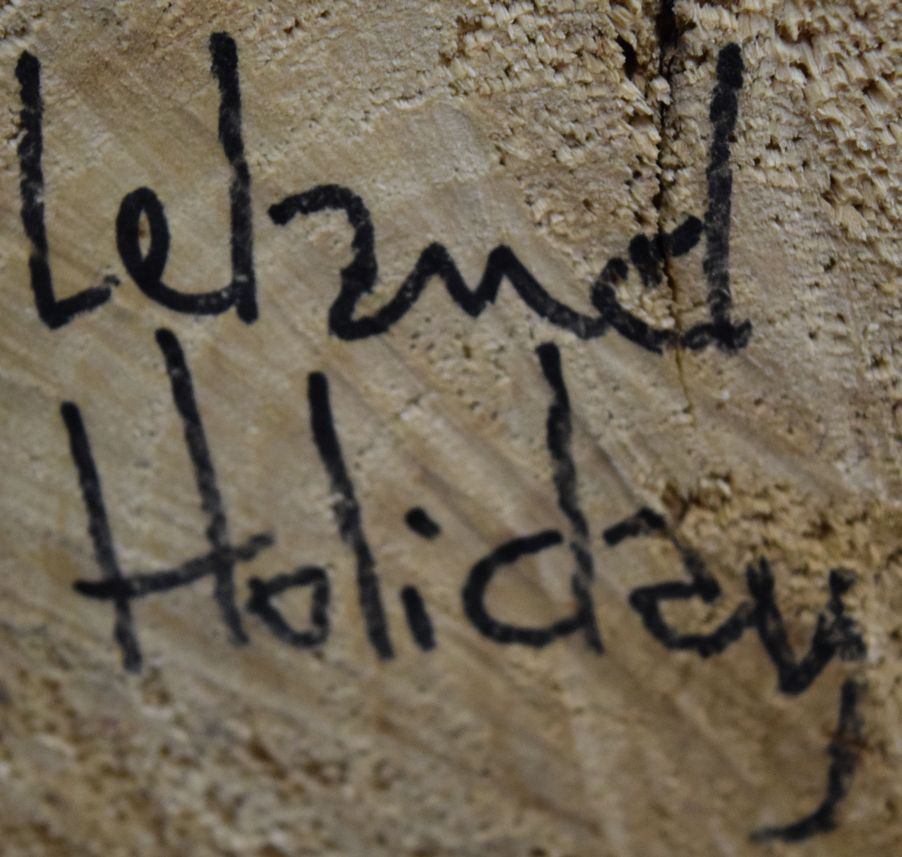 Leland
Holiday